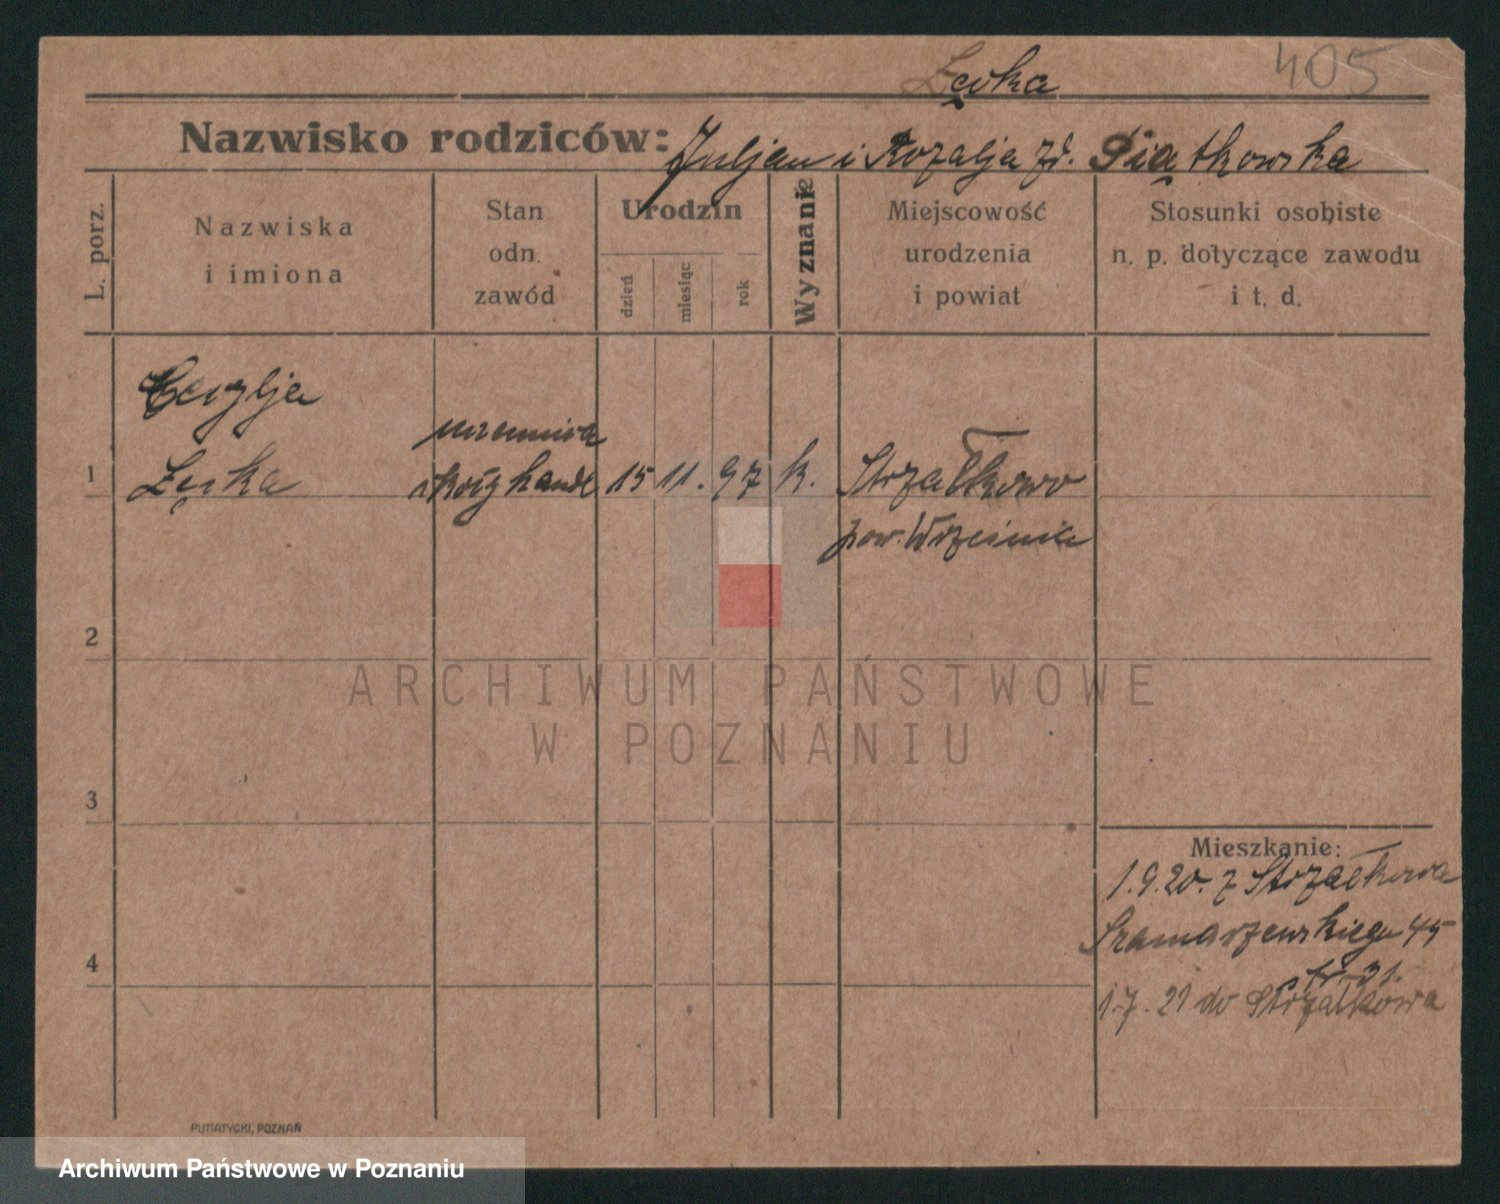 Łęcka 405
Nazwisko rodziców: Juljan i Rozalja zd. Piątkowska
L. porz.
Nazwiska
i imiona
Stan
odn.
zawód
Urodzin
dzień
miesiąc
rok
Wyznanie
Miejscowość
urodzenia
i powiat
Stosunki osobiste
n. p. dotyczące zawodu
i t. d.
Cecylja
uczennica
1 Łęcka handl 15 11. 97 k. Strzałkowo
pow. Września
2
ARCHIWUM PAŃSTWOWE
W POZNANIU
3
Mieszkanie:
1.9.20. z Strzałkowa
Szamarzewskiego 45
4
1.7.21 do Strzałkowa
PUTIATYCKI, POZNAŃ
Archiwum Państwowe w Poznaniu